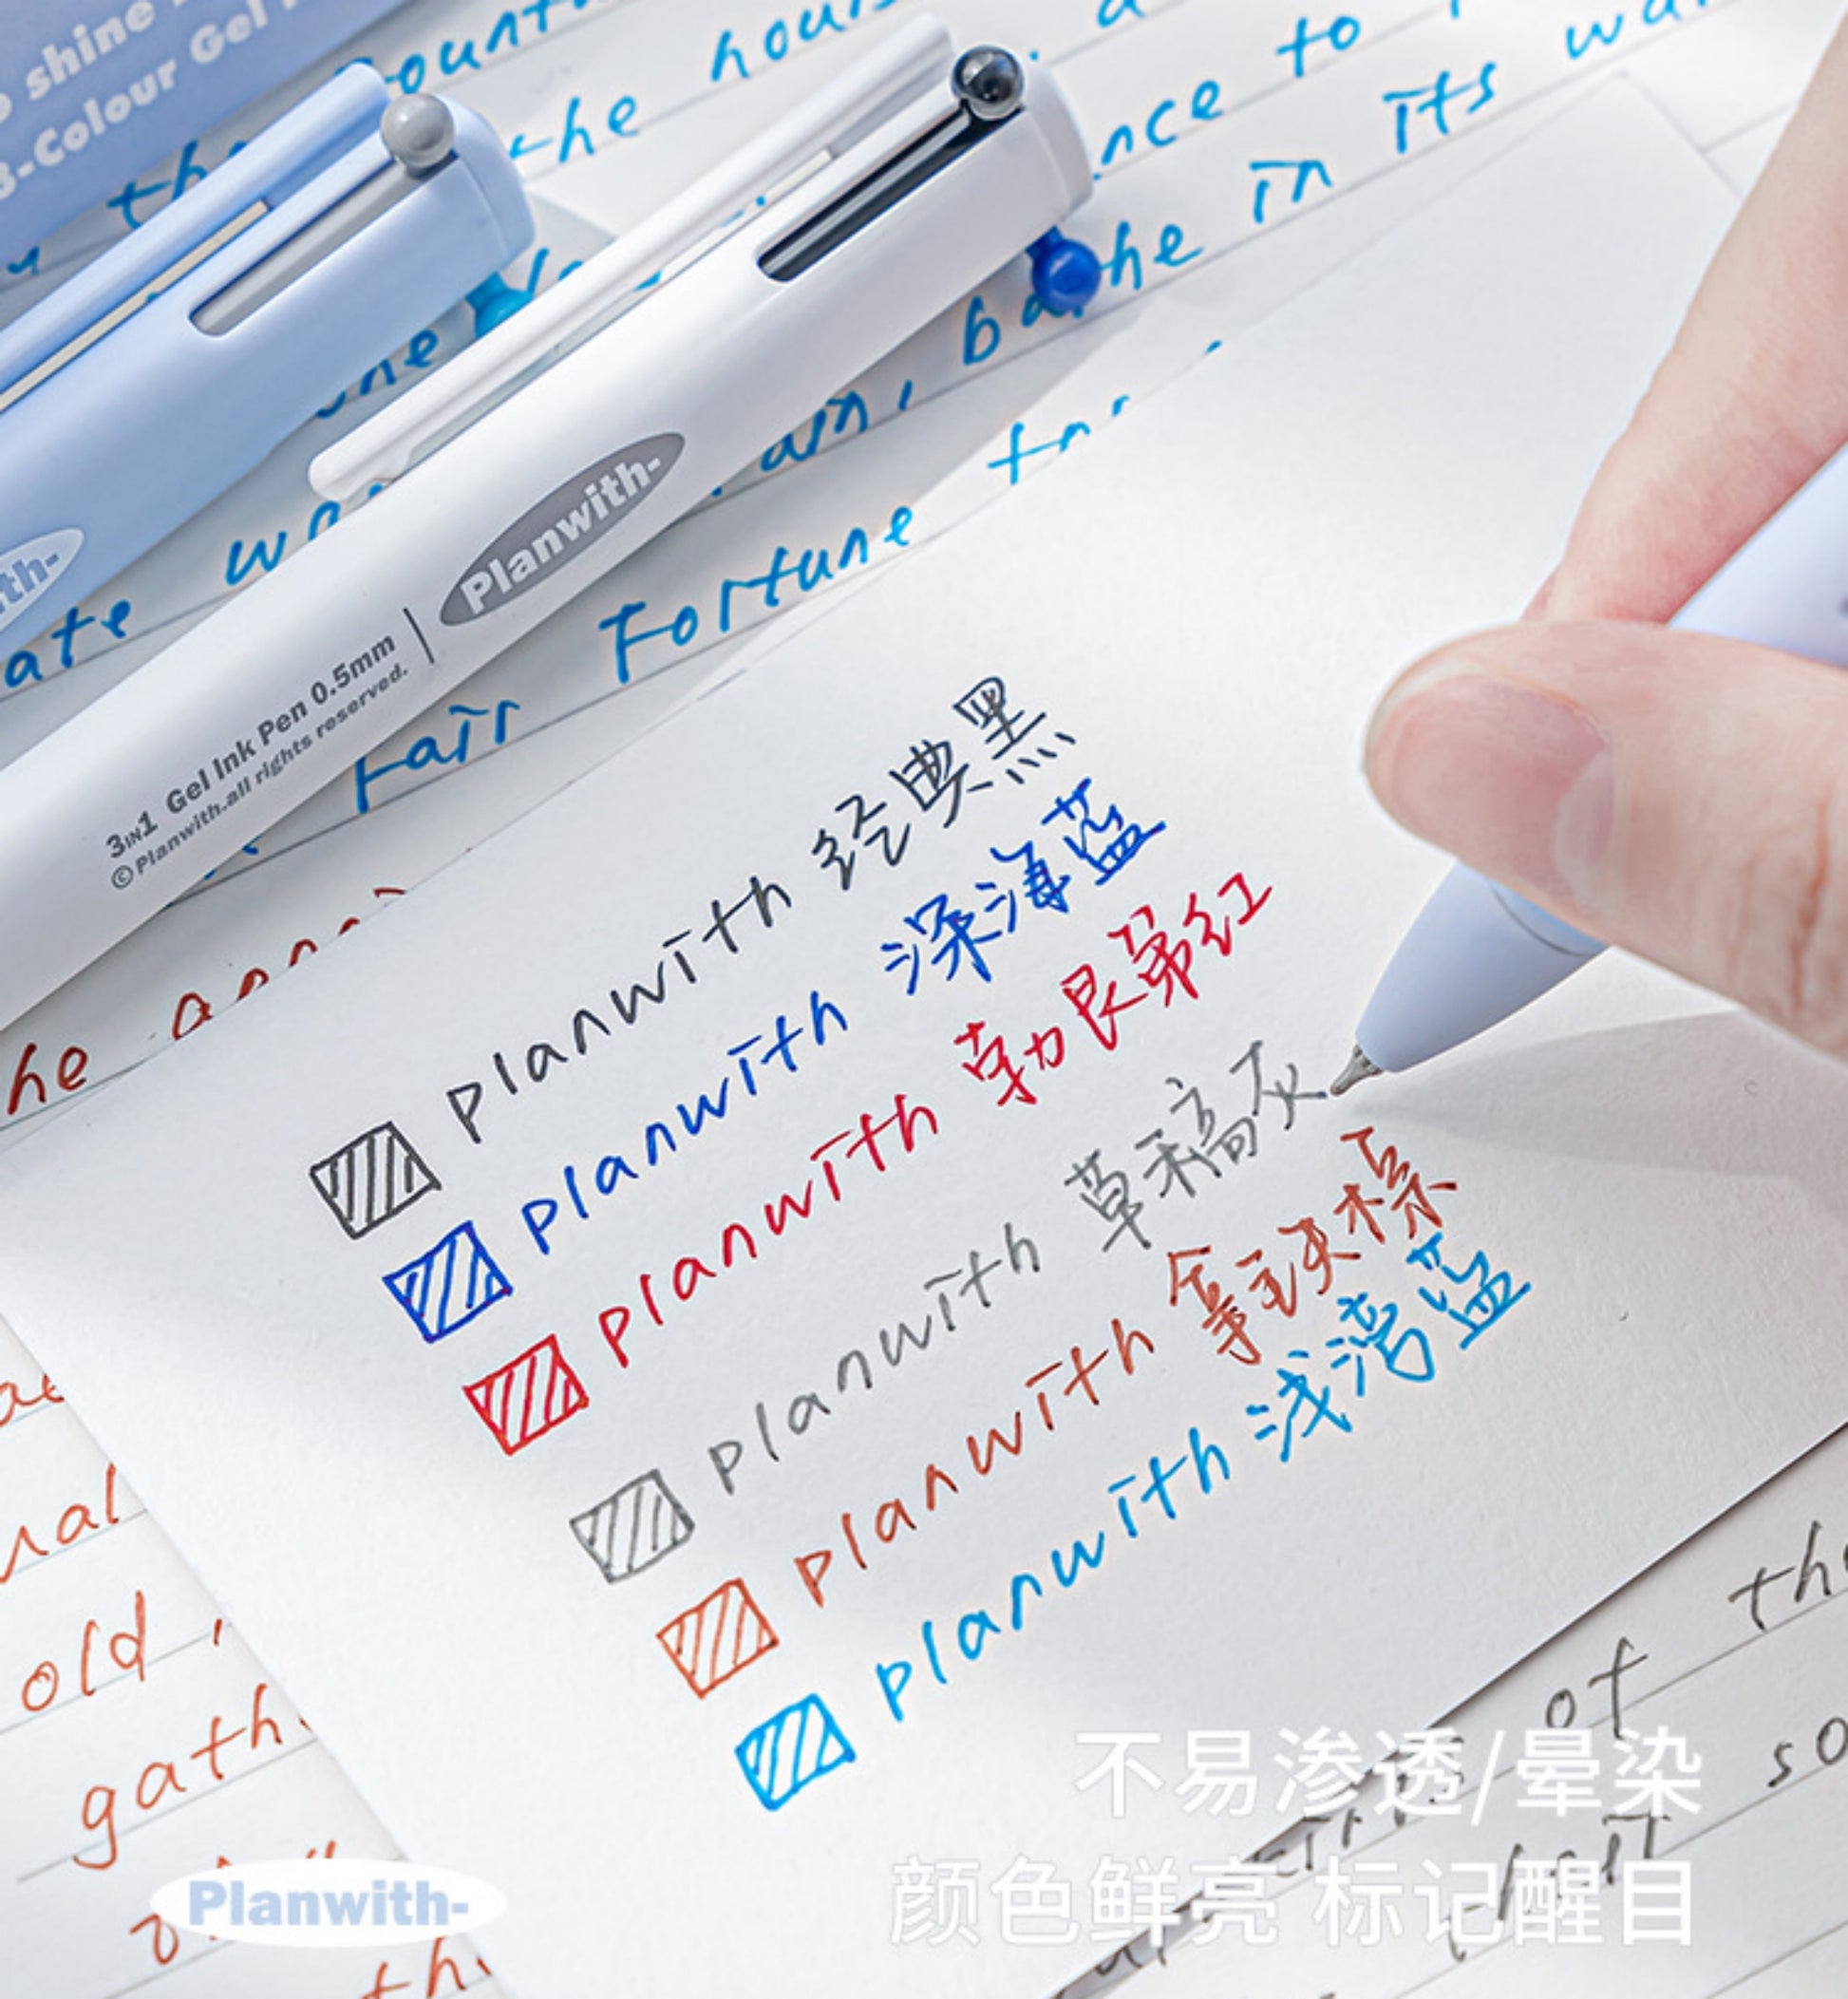 shine
3-Colour Gel
the hou
to
nce to
in its wa
ba he
ate wa
Fortune
Fair
Planwith-
3IN1 Gel Ink Pen 0.5mm
©Planwith.all rights reserved.
he
planwith 经典黑
planwith 深海蓝
planwith 勃艮第红
planwith 草稿灰
planwith 拿铁棕
planwith 浅湾蓝
old,
gath
of the
so
不易渗透/晕染
颜色鲜亮 标记醒目
Planwith-